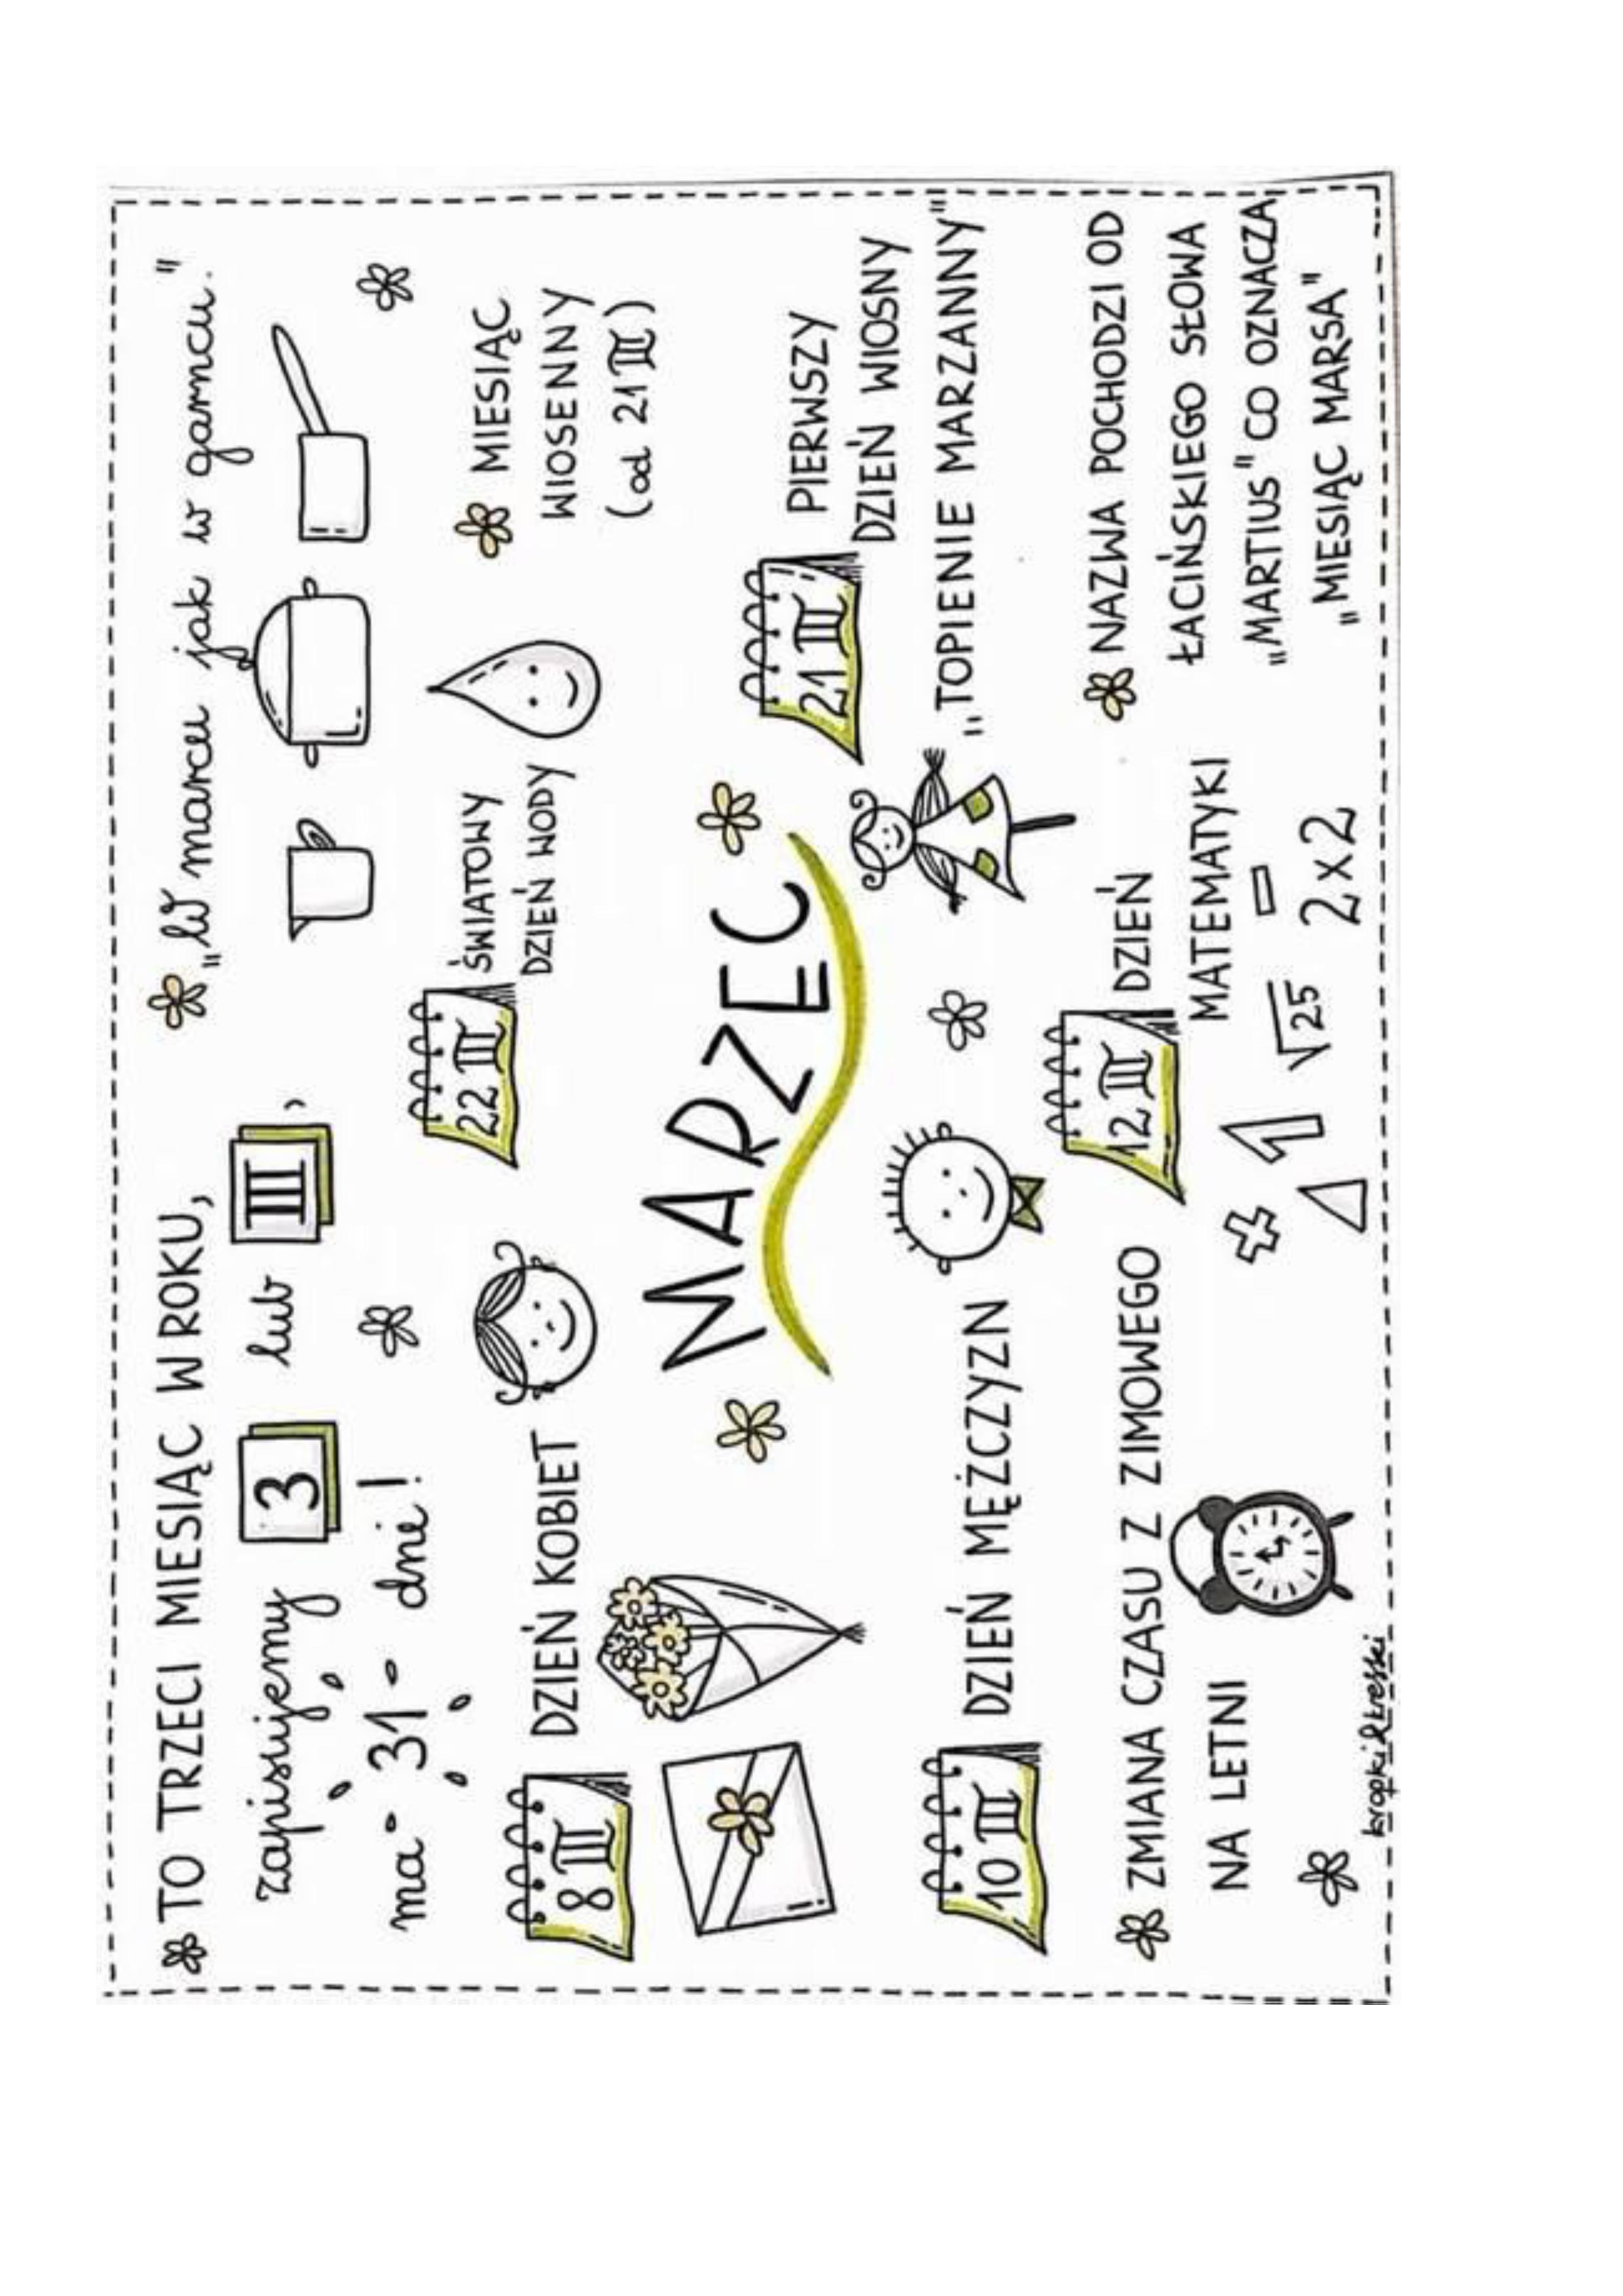 TO TRZECI MIESIĄC W ROKU,
Zapisujemy 3 lub III,
ma 31 dni!
„W marcu jak w garncu."
22 III
ŚWIATOWY
DZIEŃ WODY
MIESIĄC
WIOSENNY
(od 21 III)
8 III
DZIEŃ KOBIET
MARZEC
21 III
PIERWSZY
DZIEŃ WIOSNY
„TOPIENIE MARZANNY"
10 III
DZIEŃ MĘŻCZYZN
12 III
DZIEŃ
MATEMATYKI
+ 1 √25 =
2x2
ZMIANA CZASU Z ZIMOWEGO
NA LETNI
NAZWA POCHODZI OD
ŁACIŃSKIEGO SŁOWA
„MARTIUS" CO OZNACZA
„MIESIĄC MARSA"
kropki&kreski